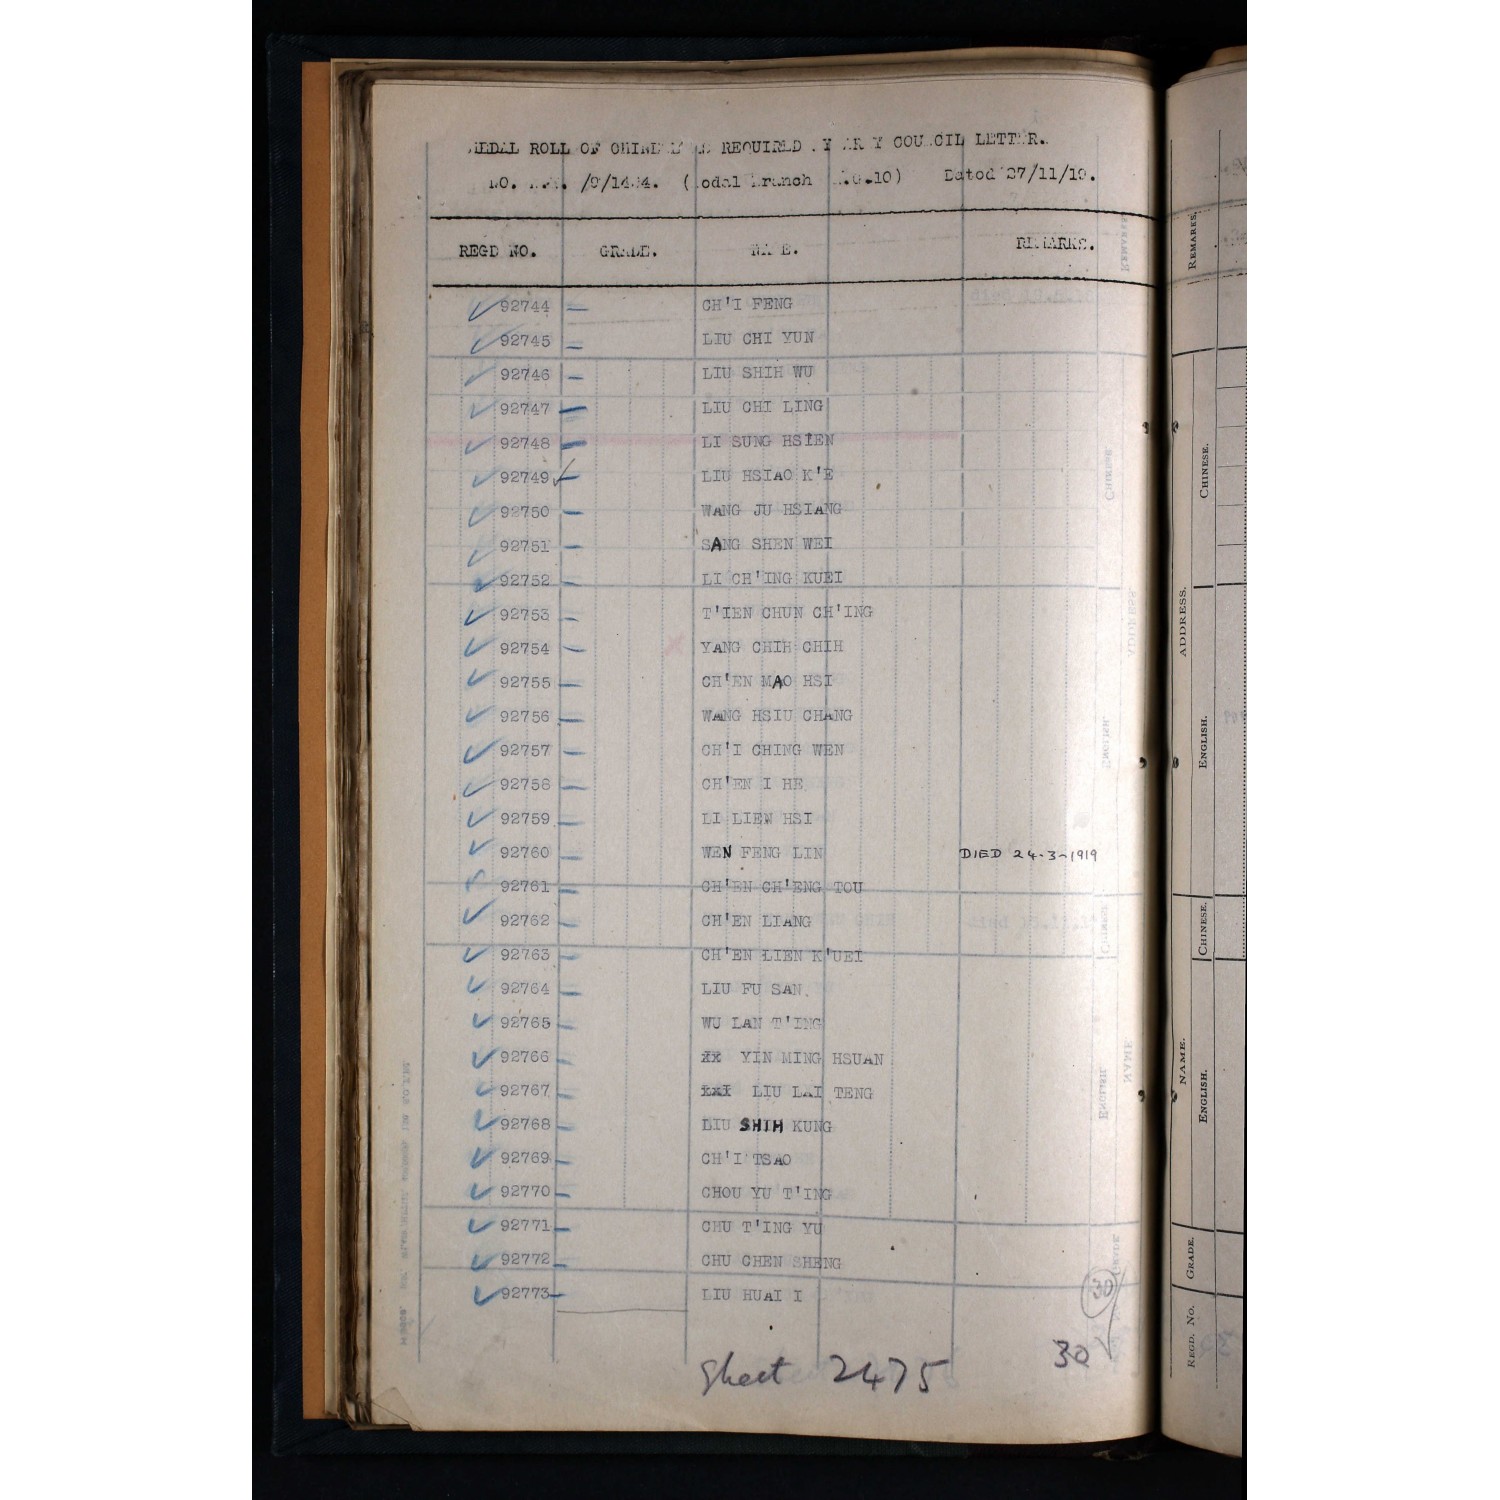 MEDAL ROLL OF CHINESE AS REQUIRED BY ARMY COUNCIL LETTER.
NO. (Medal Branch A.G.10) Dated 27/11/19.
REGD NO. GRADE. NAME. REMARKS.
92744 — CH'I FENG
92745 — LIU CHI YUN
92746 — LIU SHIH WU
92747 — LIU CHI LING
92748 — LI SUNG HSIEN
92749 — LIU HSIAO K'E
92750 — WANG JU HSIANG
92751 — SANG SHEN WEI
92752 — LI CH'ING KUEI
92753 — T'IEN CHUN CH'ING
92754 — YANG CHIH CHIH
92755 — CH'EN MAO HSI
92756 — WANG HSIU CHANG
92757 — CH'I CHING WEN
92758 — CH'EN I HE
92759 — LI LIEN HSI
92760 — WEN FENG LIN DIED 24-3-1919
92761 — CH'EN CH'ENG TOU
92762 — CH'EN LIANG
92763 — CH'EN LIEN K'UEI
92764 — LIU FU SAN
92765 — WU LAN T'ING
92766 — YIN MING HSUAN
92767 — LIU LAI TENG
92768 — LIU SHIH KUNG
92769 — CH'I TSAO
92770 — CHOU YU T'ING
92771 — CHU T'ING YU
92772 — CHU CHEN SHENG
92773 — LIU HUAI I
30
30
Sheet 2475
REMARKS.
CHINESE.
ADDRESS.
ENGLISH.
CHINESE.
NAME.
ENGLISH.
GRADE.
REGD. No.